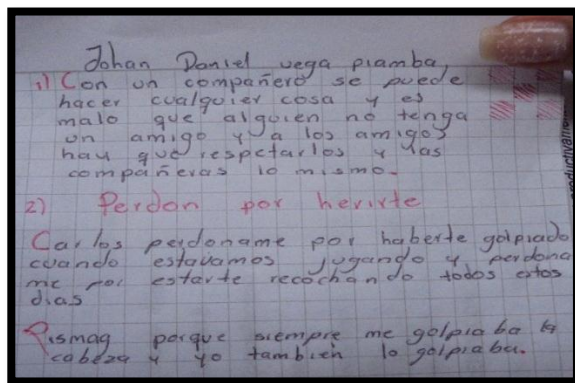 Johan Daniel vega piamba
1) Con un compañero se puede
hacer cualquier cosa y es
malo que alguien no tenga
un amigo y a los amigos
hay que respetarlos y las
compañeras lo mismo.
2) Perdon por herirte
Carlos perdoname por haberte golpiado
cuando estavamos jugando y perdona
me por estarte recochando todos estos
dias
Pismag porque siempre me golpiaba la
cabeza y yo tambien lo golpiaba.